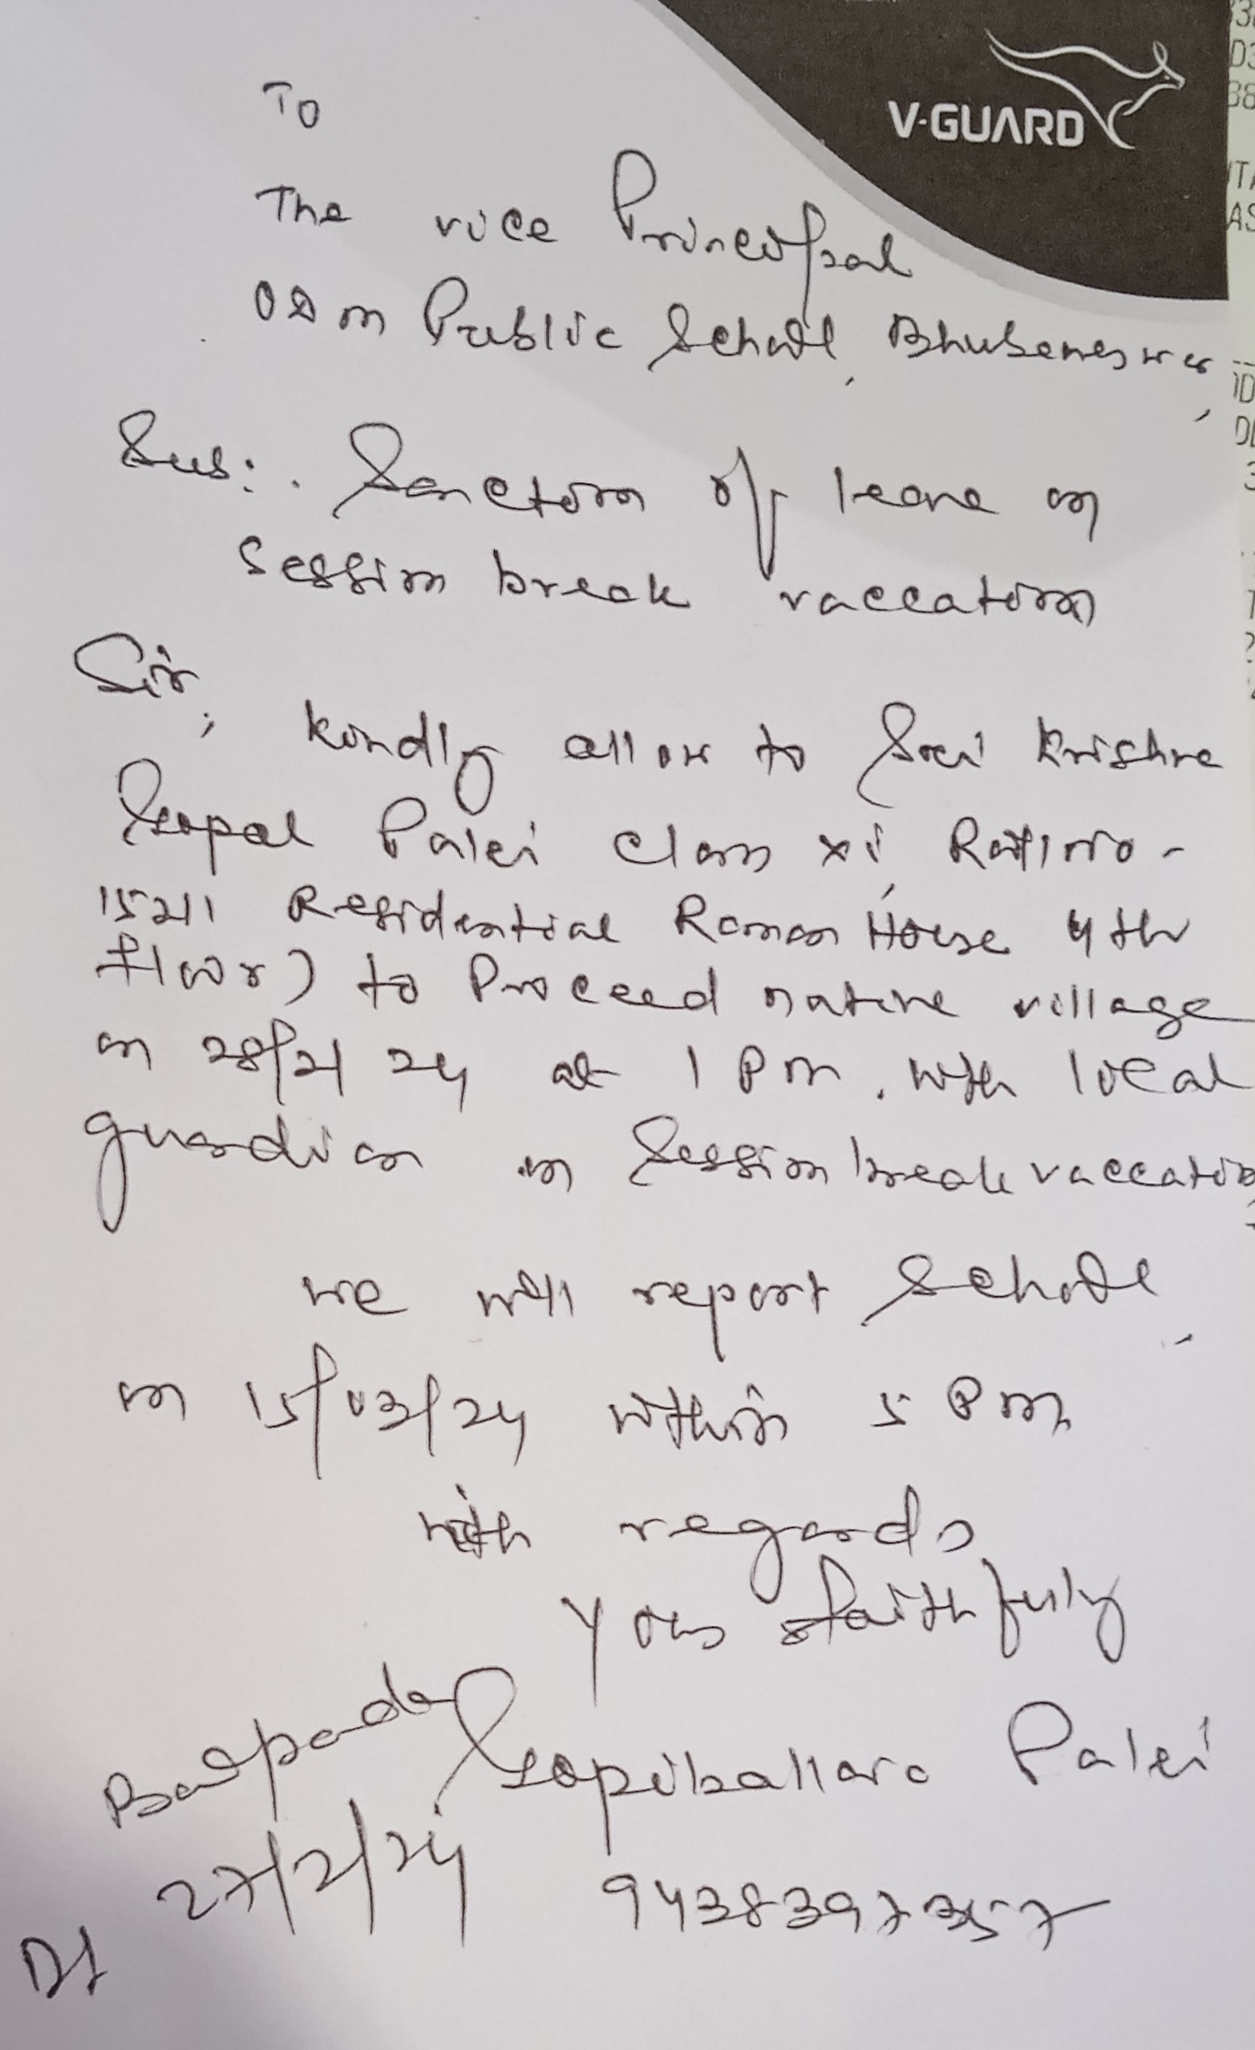 V-GUARD
To
The vice Principal
ODM Public School, Bhubaneswar,
Sub: Sanction of leave on
Session break vaccation
Sir,
kindly allow to Sri Krishna
Gopal Palei Class XI, Roll No -
15211 Residential Raman House 4th
floor) to Proceed native village
on 28/2/24 at 1 Pm, with local
guardian in Session break vaccation
we will report School
on 15/03/24 within 5 Pm
with regards
Yours faithfully
Gopiballava Palei
27/2/24
9438397357
Dt